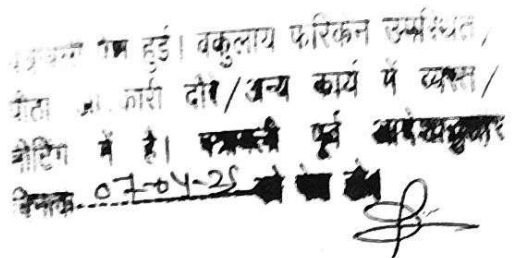 पत्रावली पेश हुई। वकुलाय फरिकन उपस्थित,
पीठा अ. कारी दौरे/अन्य कार्य में व्यस्त/
मीटिंग में है। पत्रावली पूर्व आदेशानुसार
दिनांक 07-04-25 को पेश हो।